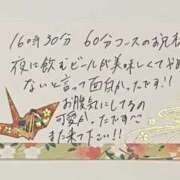 160時30分 60分コースのお礼
夜に飲むビールが美味しくてやめられ
ないと言って面白かったです!!
お腹気にしてるの
可愛かったです
また来て下さい!!